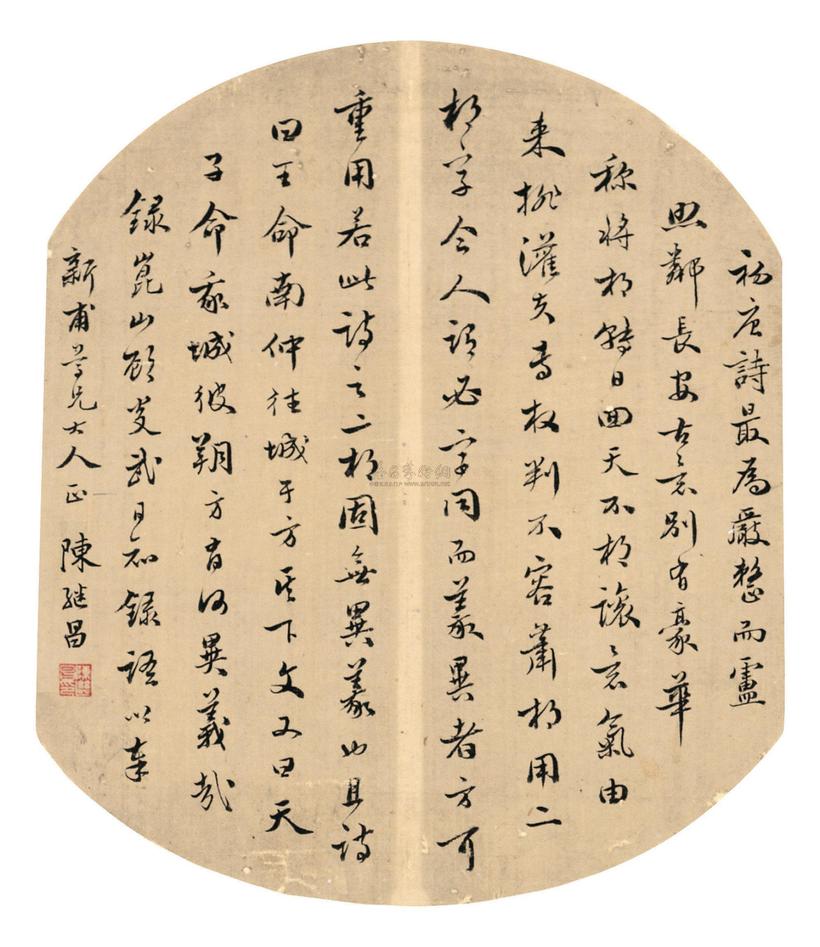 初唐詩最為嚴整而盧
照鄰長安古意別有豪華
称將相轉日囬天不相讓意氣由
來排灌夫專权判不容蕭相用二
相字今人謂必字同而義異者方可
重用若此詩之二相固無異義也且詩
曰王命南仲往城于方其下文又曰天
子命我城彼朔方有何異義哉
録崑山顧炎武日知録語以奉
新甫尊兄大人正 陳継昌